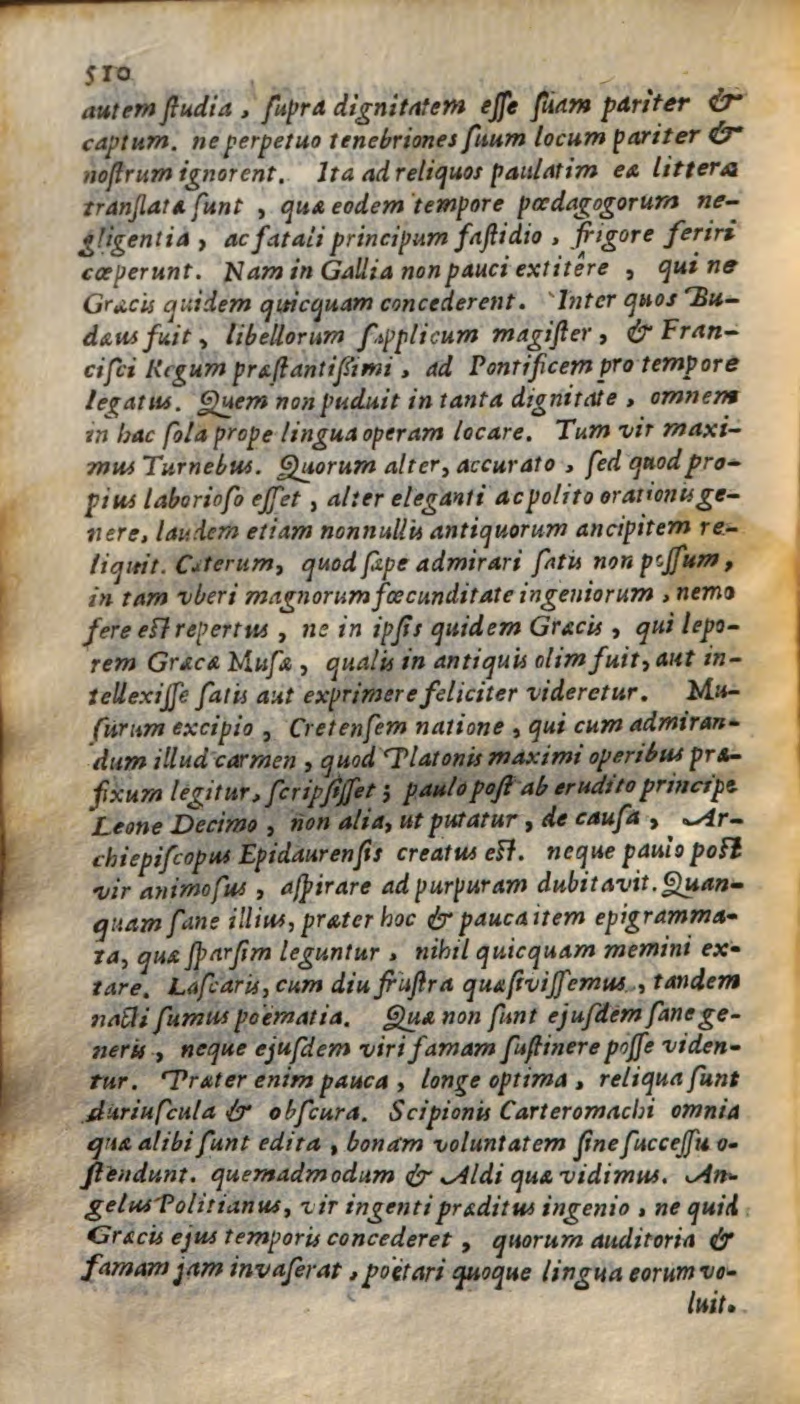 510
autem ſtudia, ſupra dignitatem eſſe ſuam pariter &
captum. ne perpetuo tenebriones ſuum locum pariter &
noſtrum ignorent. Ita ad reliquos paulatim eæ litteræ
tranſlatæ ſunt, quæ eodem tempore pœdagogorum ne-
gligentia, ac fatali principum faſtidio, frigore feriri
cœperunt. Nam in Gallia non pauci extitêre, qui ne
Græcis quidem quicquam concederent. Inter quos Bu-
dæus fuit, libellorum ſupplicum magiſter, & Fran-
ciſci Regum præſtantiſſimi, ad Pontificem pro tempore
legatus. Quem non puduit in tanta dignitate, omnem
in hac ſola prope lingua operam locare. Tum vir maxi-
mus Turnebus. Quorum alter, accurato, ſed quod pro-
pius laborioſo eſſet, alter eleganti ac polito orationis ge-
nere, laudem etiam nonnullis antiquorum ancipitem re-
liquit. Cæterum, quod ſæpe admirari ſatis non poſſum,
in tam vberi magnorum fœcunditate ingeniorum, nemo
fere eſt repertus, ne in ipſis quidem Græcis, qui lepo-
rem Græcæ Muſæ, qualis in antiquis olim fuit, aut in-
tellexiſſe ſatis aut exprimere feliciter videretur. Mu-
ſurum excipio, Cretenſem natione, qui cum admiran-
dum illud carmen, quod Platonis maximi operibus præ-
fixum legitur, ſcripſiſſet; paulo poſt ab erudito principe
Leone Decimo, non alia, ut putatur, de cauſa, Ar-
chiepiſcopus Epidaurenſis creatus eſt. neque paulo poſt
vir animoſus, aſpirare ad purpuram dubitavit. Quan-
quam ſane illius, præter hoc & pauca item epigramma-
ta, quæ ſparſim leguntur, nihil quicquam memini ex-
tare. Laſcaris, cum diu fruſtra quæſiviſſemus, tandem
nacti ſumus poëmatia. Quæ non ſunt ejuſdem ſane ge-
neris, neque ejuſdem viri famam ſuſtinere poſſe viden-
tur. Præter enim pauca, longe optima, reliqua ſunt
duriuſcula & obſcura. Scipionis Carteromachi omnia
quæ alibi ſunt edita, bonam voluntatem ſine ſucceſſu o-
ſtendunt. quemadmodum & Aldi quæ vidimus. An-
gelus Politianus, vir ingenti præditus ingenio, ne quid
Græcis ejus temporis concederet, quorum auditoria &
famam jam invaſerat, poëtari quoque lingua eorum vo-
luit.